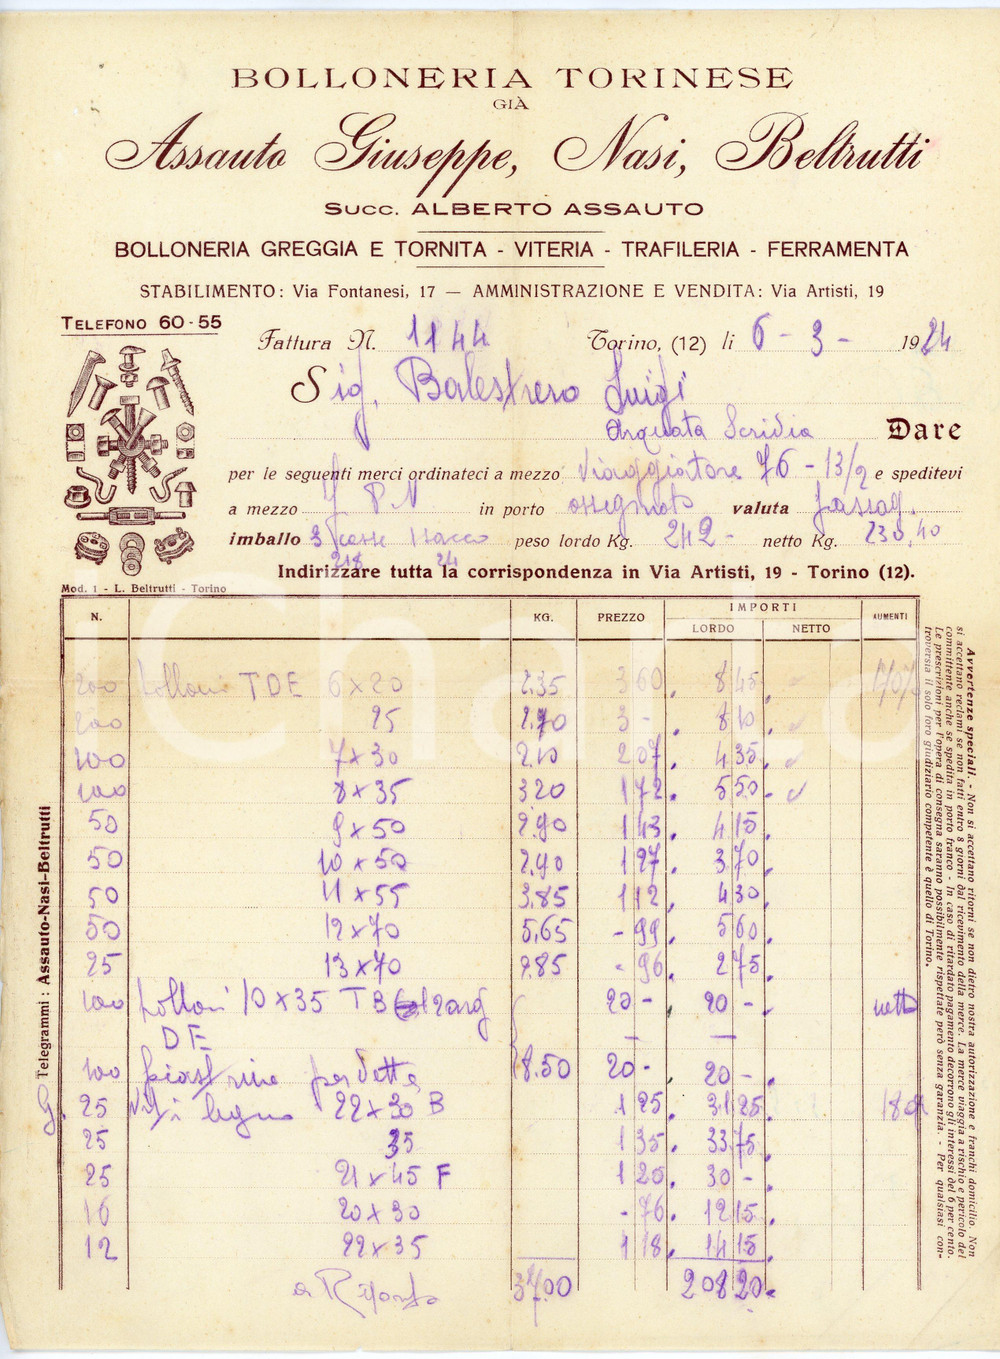 BOLLONERIA TORINESE
GIÀ
Assauto Giuseppe, Nasi, Beltrutti
SUCC. ALBERTO ASSAUTO
BOLLONERIA GREGGIA E TORNITA - VITERIA - TRAFILERIA - FERRAMENTA
STABILIMENTO: Via Fontanesi, 17 — AMMINISTRAZIONE E VENDITA: Via Artisti, 19
TELEFONO 60-55
Fattura N. 1144 Torino, (12) li 6 - 3 - 1924
Sig. Balestrero Luigi
Arquata Scrivia Dare
per le seguenti merci ordinateci a mezzo Viaggiatore 76 - 13/2 e speditevi
a mezzo PN in porto assegnato valuta
imballo 3 casse 1 sacco peso lordo Kg. 242 - netto Kg. 230,40
218 24
Indirizzare tutta la corrispondenza in Via Artisti, 19 - Torino (12).
Mod. 1 - L. Beltrutti - Torino
N. KG. PREZZO IMPORTI AUMENTI
LORDO NETTO
200 bolloni TDE 6 x 20 2.35 3 60 8 45
200 25 2.70 3 - 8 10
100 7 x 30 2.10 2 07 4 35
100 8 x 35 3 20 1 72 5 50
50 9 x 50 2.90 1 43 4 15
50 10 x 50 2.90 1 27 3 70
50 11 x 55 3.85 1 12 4 30
50 12 x 70 5,65 - 99 5 60
25 13 x 70 2.85 - 96 2 75
100 bolloni 10 x 35 TB 20 - 20 - netto
DE — —
100 piastrine per dette 8.50 20 - 20 -
25 Viti legno 22 x 30 B 1 25 31 25
25 35 1 35 33 75
25 21 x 45 F 1 20 30 -
16 20 x 30 - 76 12 15
12 22 x 35 1 18 14 15
a Riporto 37.00 208 20
Telegrammi: Assauto-Nasi-Beltrutti
Avvertenze speciali. - Non si accettano ritorni se non dietro nostra autorizzazione e franchi domicilio. Non
si accettano reclami se non fatti entro 8 giorni dal ricevimento della merce. La merce viaggia a rischio e pericolo del
committente anche se spedita in porto franco - In caso di ritardato pagamento decorrono gli interessi del 6 per cento.
Le prescrizioni per l'opera di consegna saranno possibilmente rispettate però senza garanzia. - Per qualsiasi con-
troversia il solo foro giudiziario competente è quello di Torino.